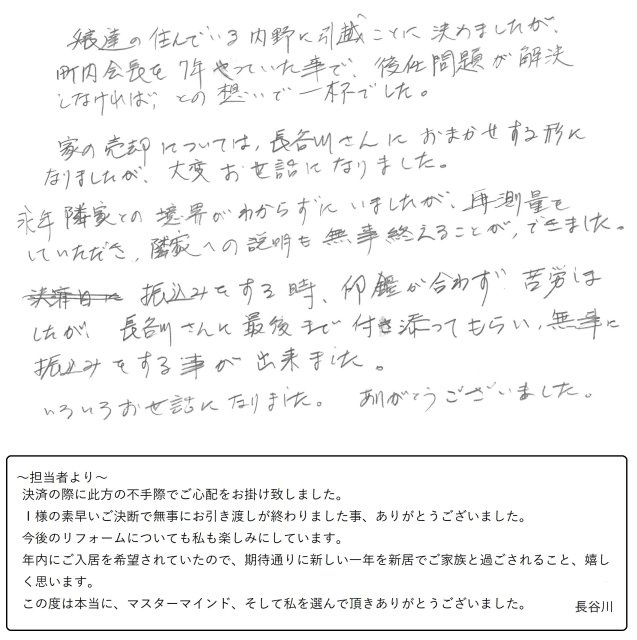 娘達の住んでいる内野に引越ことに決めましたが、
町内会長を7年やっていた事で、後任問題が解決
しなければ、との想いで一杯でした。
家の売却については、長谷川さんにおまかせする形に
なりましたが、大変お世話になりました。
永年隣家との境界がわからずにいましたが、再測量を
していただき、隣家への説明も無事終えることが、できました。
決済日に 振込みをする時、印鑑が合わず 苦労は
したが、長谷川さんに最後まで付き添ってもらい、無事に
振込みをする事が出来ました。
いろいろお世話になりました。 ありがとうございました。
～担当者より～
決済の際に此方の不手際でご心配をお掛け致しました。
I様の素早いご決断で無事にお引き渡しが終わりました事、ありがとうございました。
今後のリフォームについても私も楽しみにしています。
年内にご入居を希望されていたので、期待通りに新しい一年を新居でご家族と過ごされること、嬉し
く思います。
この度は本当に、マスターマインド、そして私を選んで頂きありがとうございました。 長谷川